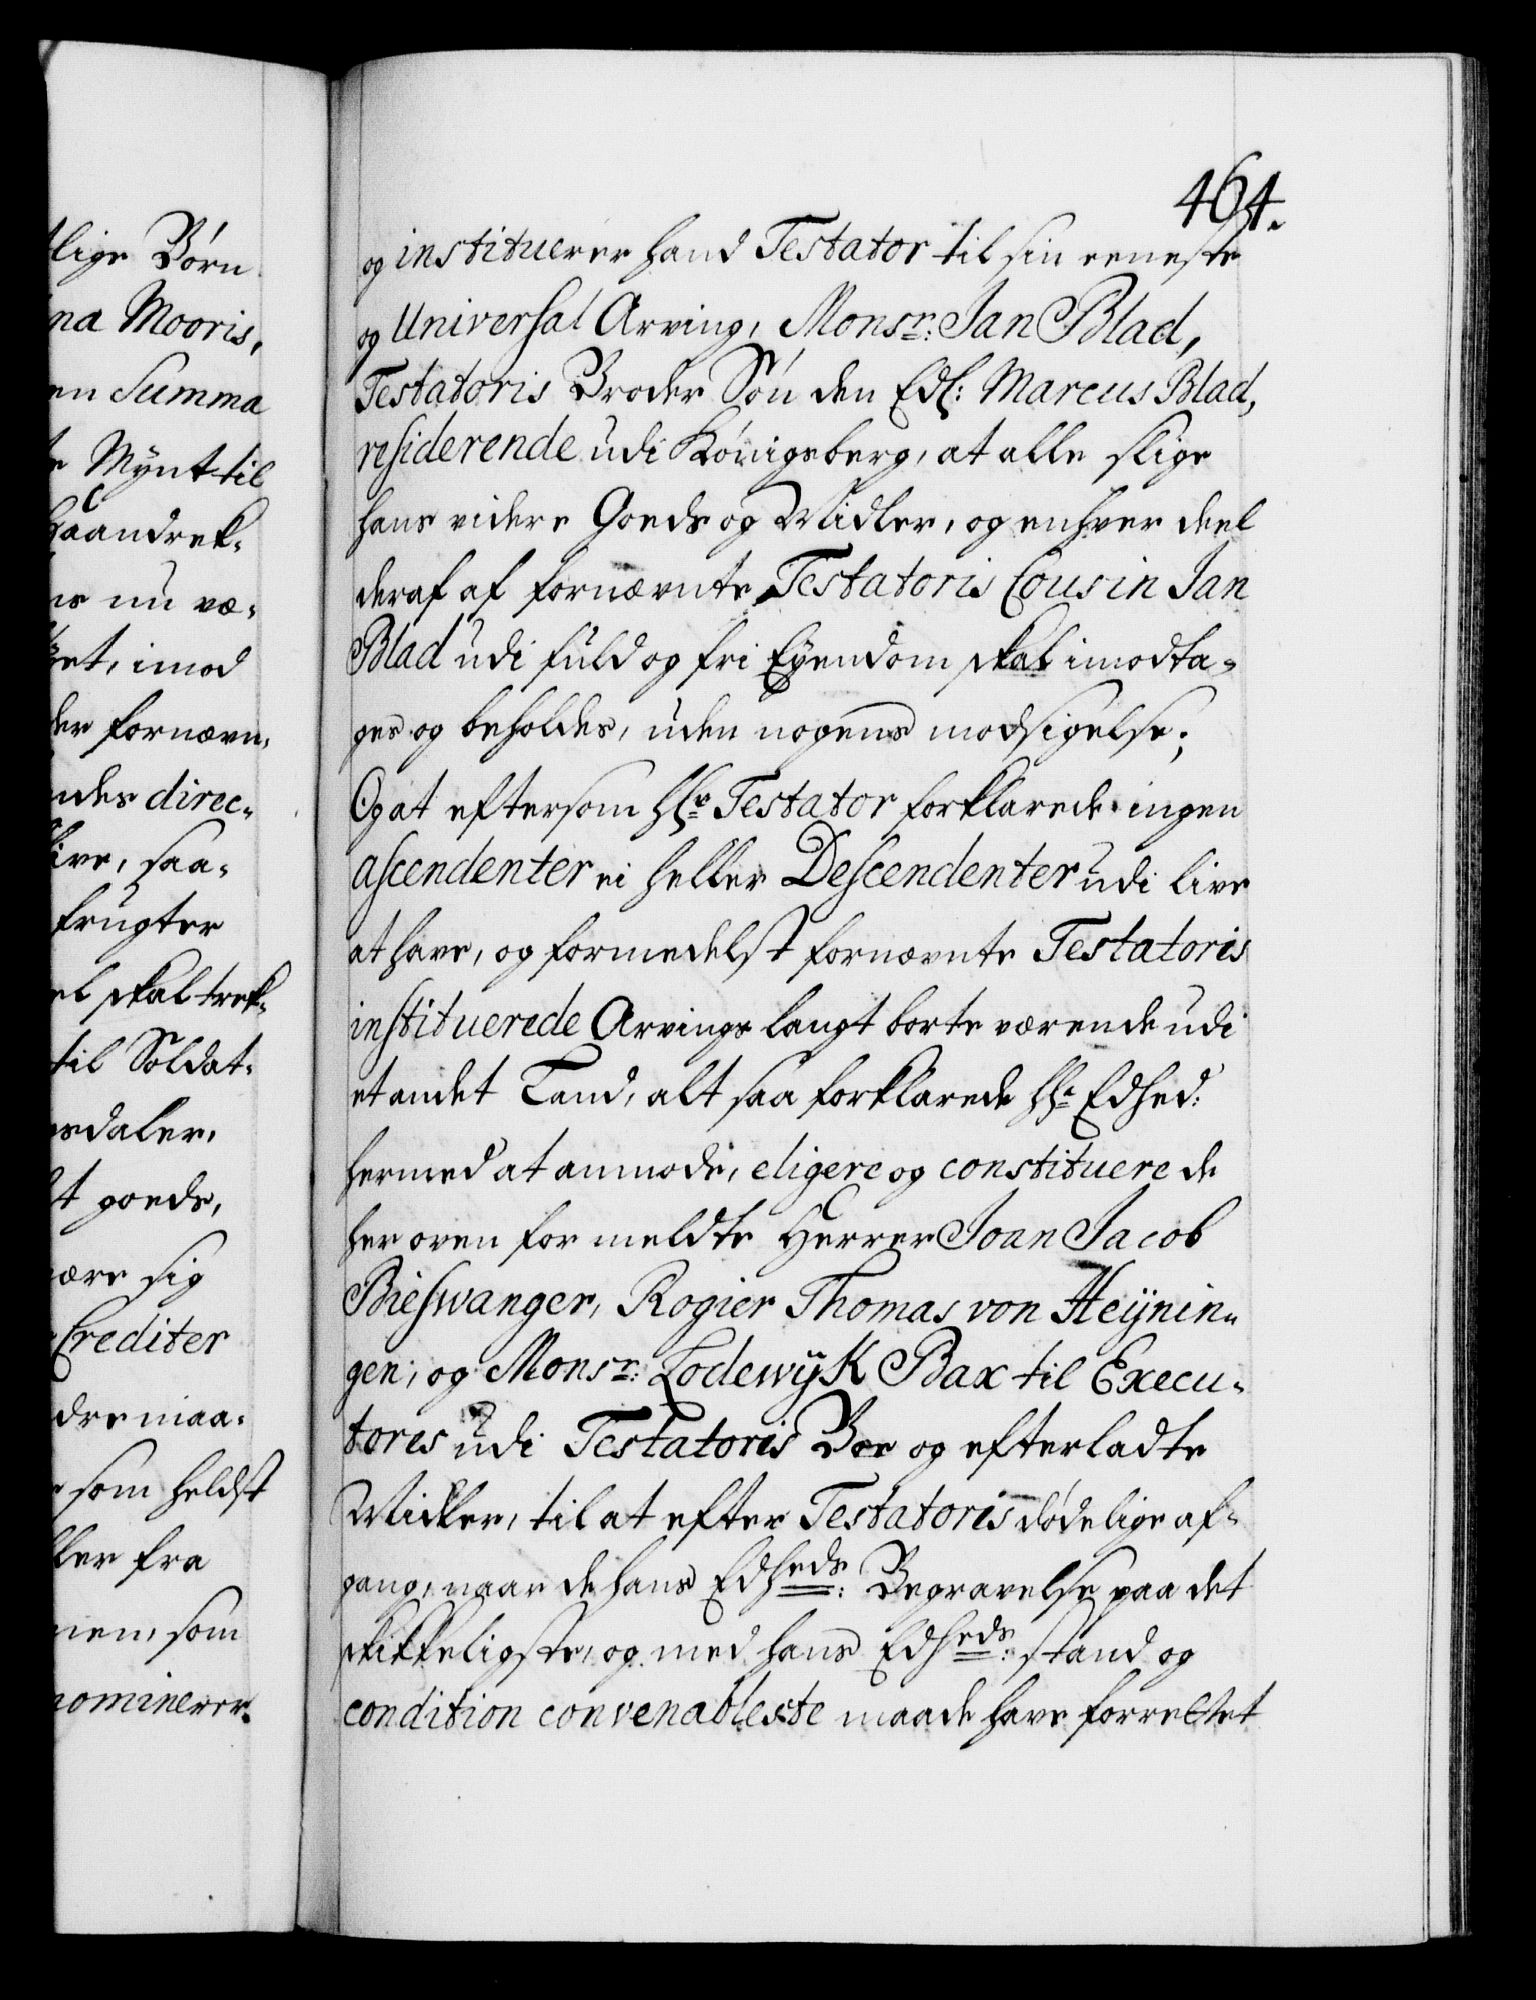 lige Børn
na Mooris,
en Summa
Mynt til
haandrek¬
nu væ¬
et, imod
der fornævn¬
ndes direc¬
ive, saa¬
frugter
el skal trek¬
til Soldat¬
sdaler,
t goeds,
ære sig
Crediter
dre maa¬
som heldst
ler fra
nen, som
nominerer.
464.
og instituerer hand Testator til sin eeneste
og Universal Arving, Monsr: Jan Blad,
Testatoris Broder Søn den Edl: Marcus Blad,
residerende udi Königsberg, at alle slige
hans videre Goeds og Midler, og enhver deel
deraf af fornævnte Testatoris Cousin Jan
Blad udi fuld og fri Eyendom skal imodta¬
ges og beholdes, uden nogens modsigelse;
Og at eftersom Hr Testator forklarede ingen
ascendenter ei heller Descendenter udi live
at have, og formedelst fornævnte Testatoris
instituerede Arvings langt borte værende udi
et andet Land, alt saa forklarede Hr Edhed:
hermed at anmode, eligere og constituere de
her oven formeldte Herrer Joan Jacob
Bieswanger, Rogier Thomas von Heijnin¬
gen, og Monsr: Lodewijk Bax til Execu¬
tores udi Testatoris Boe og efterladte
Midler, til at efter Testatoris dødelige af¬
gang, naar de hans Edheds: Begravelse paa det
skikkeligste, og med hans Edheds: stand og
condition convenableste maade have forrettet